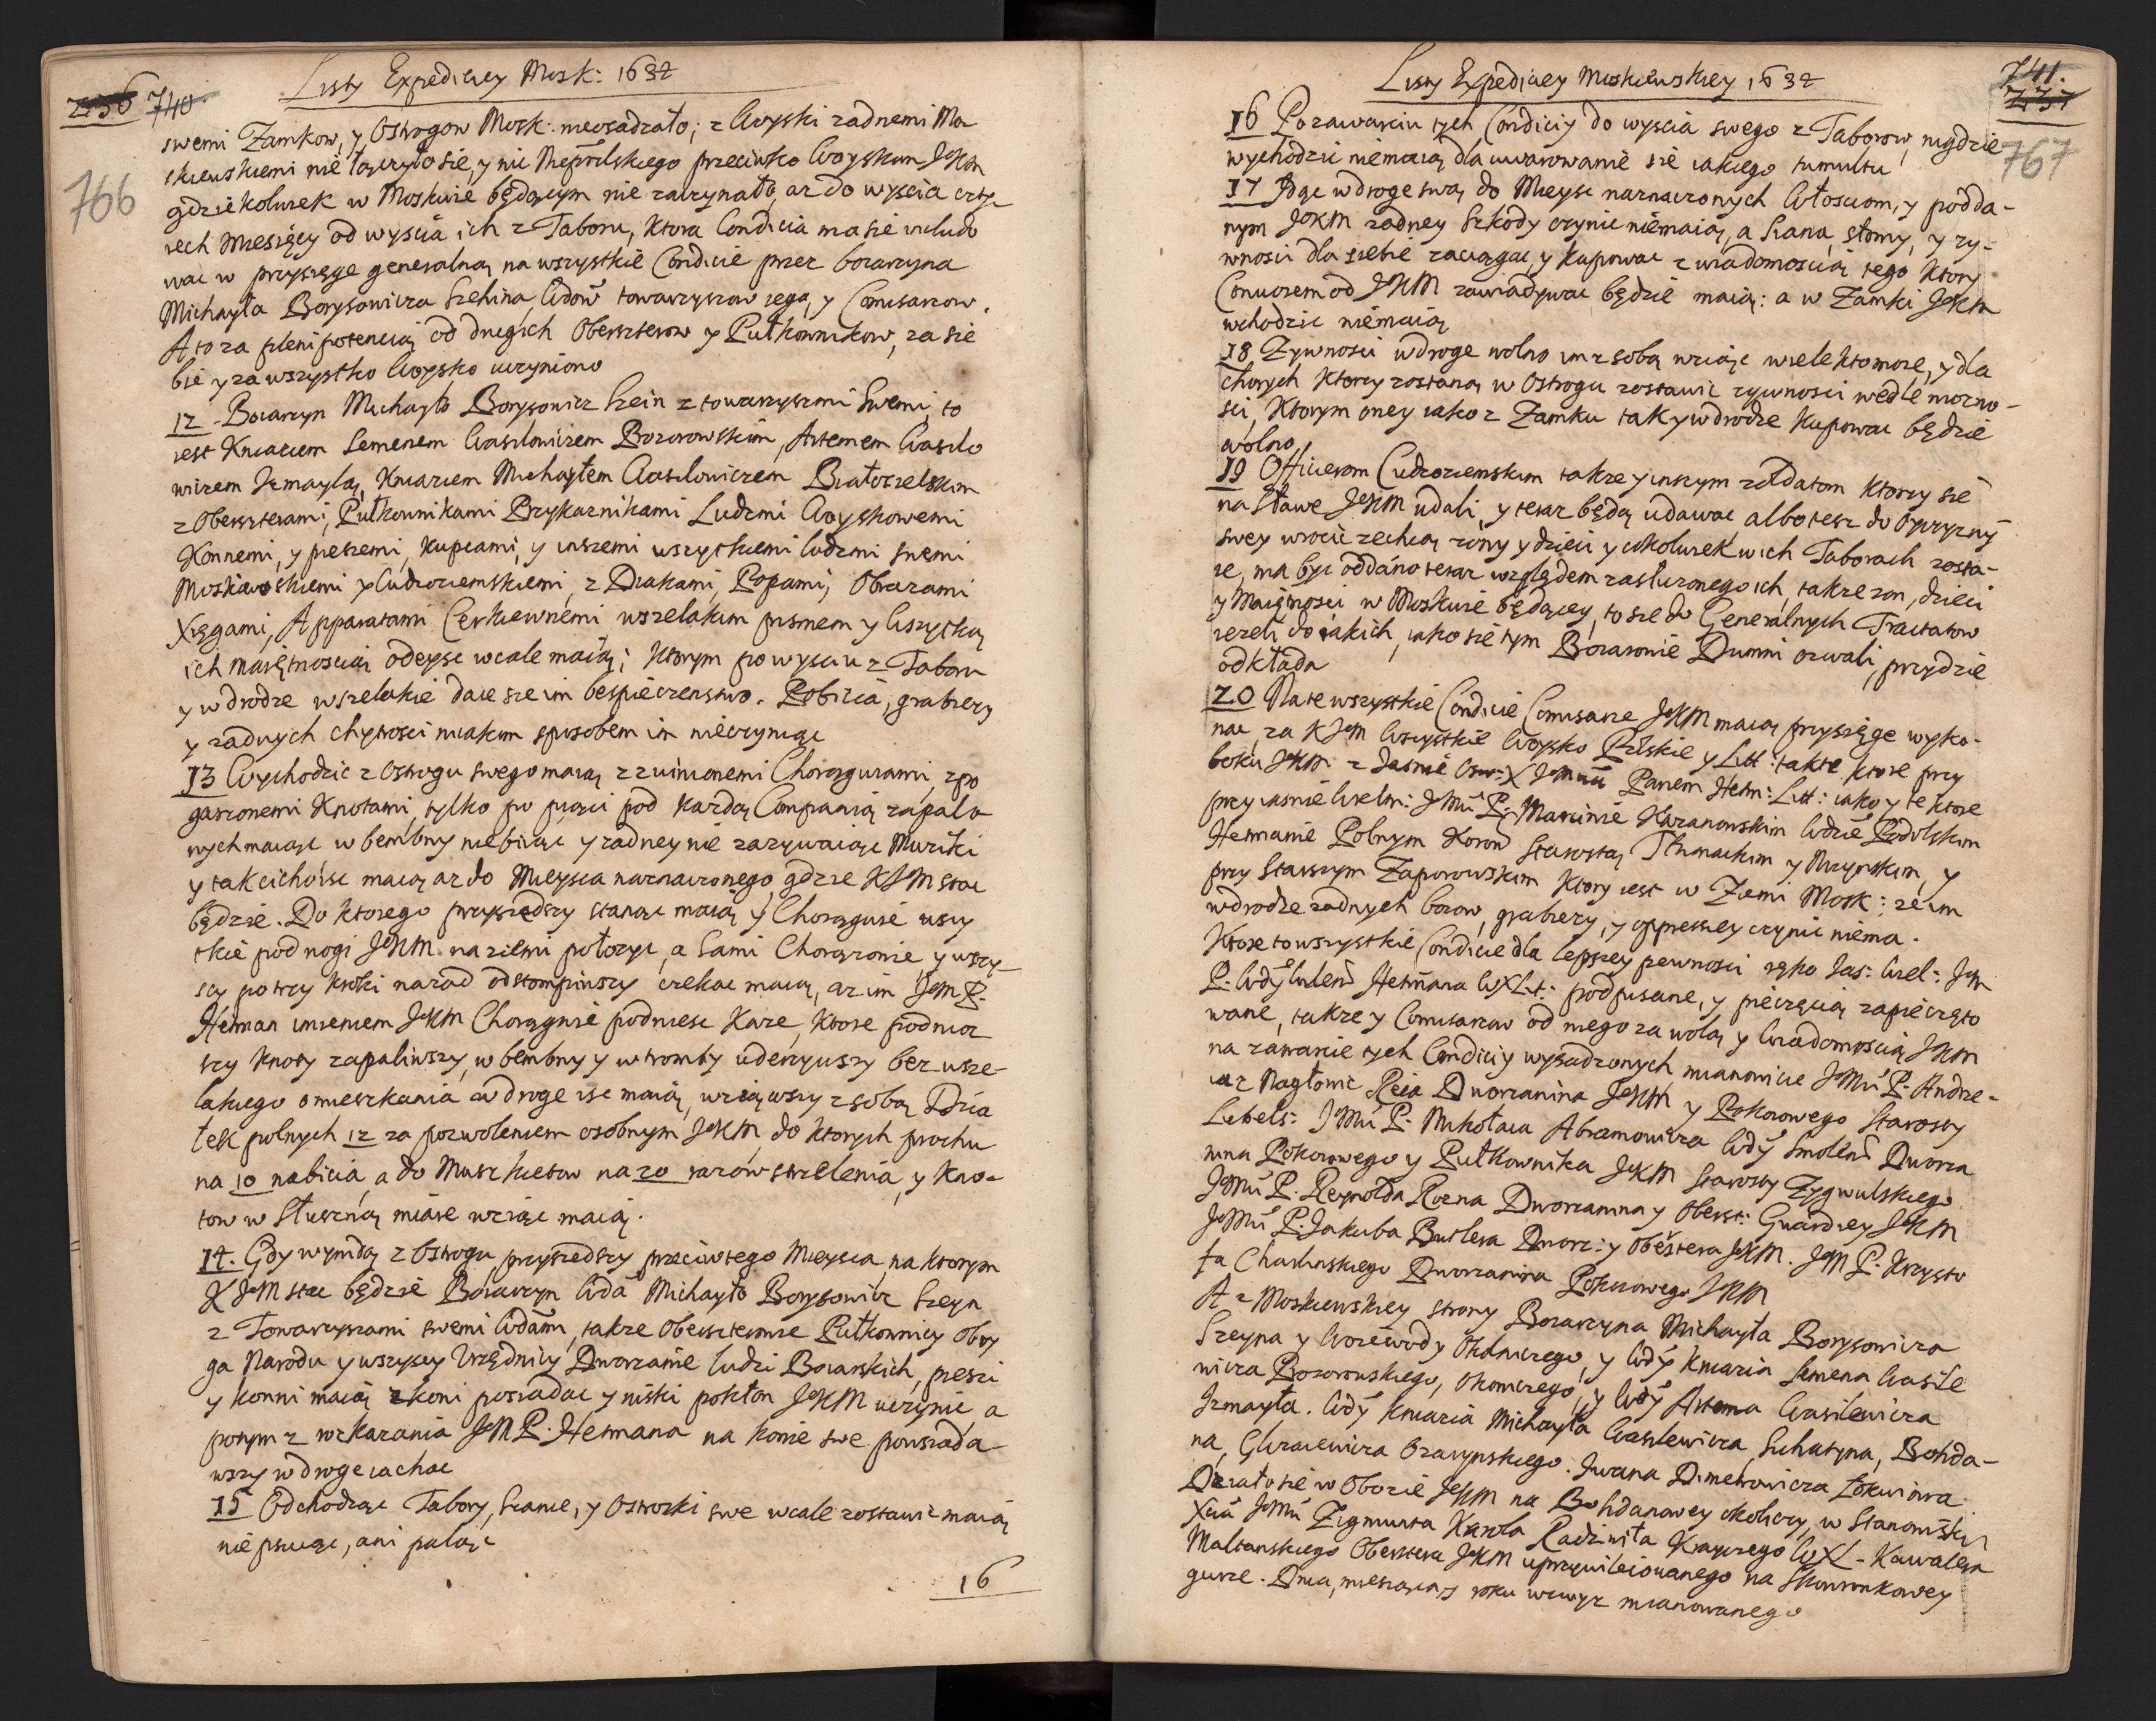 236 740.
Listy Expediciey Mosk: 1632
766
swemi Zamkow, y Ostrogow Mosk: nieosadzało; z Woyski zadnemi Mo
skiewskiemi nie łączyło sie, y nic Nieprilskiego przeciwko Woyskum JKM
gdziekolwiek w Moskwie będącym nie zaczynało, az do wyscia czte
rech Miesięcy od wyscia ich z Taboru, ktora Condicia ma sie includo
wac w przysięgę generalną na wszystkie Condicie przez boiarzyna
Michayła Borysowicza Szehina, Wdow towarzyszow iego, y Comisarzow.
A to za plenipotencią od drugich Oberszterow y Pułkownikow, za sie
bie y za wszystko Woysko uczyniono
12. Boiarzyn Michayło Borysowicz Szein z towarzyszmi Swemi, to
iest Kniaziem Semenem Wasilowiczem Prozorowskim, Artemem Wasilo
wiczem Izmayłą, Kniaziem Michayłem Wasilowiczem Białosielskim
z Oberszterami, Pułkownikami Przykaznikami Ludzmi Woyskowemi
Konnemi, y pieszemi, kupcami, y inszemi wszystkiemi ludzmi swemi
Moskiewskiemi y Cudzoziemskiemi, z Diakami, Popami, Obrazami
Xięgami, Apparatami Cerkiewnemi wszelakim pismem y Wszytką
ich maiętnoscią odeysc wcale maią; ktorym po wysciu z Taboru
y w drodze wszelakie daie sie im bespieczenstwo. Pobicia, grabiezy
y zadnych chytrosci niiakim sposobem im nieczyniąc
13 Wychodzic z Ostrogu swego maią z zwinionemi Chorągwiami, z po
gaszonemi Knotami, tylko po pięci pod kazdą Companią zapalo
nych maiąc w bembny niebiiąc y zadney nie zazywaiąc Muziki
y tak cicho isc maią az do Mieysca naznaczonego, gdzie KJM stac
będzie. Do ktorego przyszedszy stanąc maią y Chorągwie wszy
tkie pod nogi JKM. na ziemi połozyc, a Sami Chorązowie, y wszy-
scy po trzy kroki nazad odstompiwszy czekac maią, az im JM P.
Hetman imieniem JKM Chorągwie podniesc kaze, ktore podniosz
szy knoty zapaliwszy, w bembny y w tromby uderzywszy bez wsze-
lakiego omieszkania w droge isc maią, wziąwszy z sobą Dzia
łek polnych 12 za pozwoleniem osobnym JKM, do ktorych prochu
na 10 nabicia, a do Muszkietow na 20 razow strzelenia, y Kno-
tow w Słuszną miarę wziąc maią.
14. Gdy wynidą z Ostrogu, przyszedszy przeciw tego Mieysca, na ktorym
KJM stac będzie Boiarzyn Wda Michayło Borysowicz Szeyn
z Towarzyszami swemi Wdami, takze Oberszterowie Pułkownicy Obcy
ga Narodu y wszyscy Urzędnicy Dworzanie ludzi Boiarskich, pieszi
y konni maią z koni posiadac y niski pokłon JKM uczynic, a
potym z wskazania JM P. Hetmana na konie swe powsiada-
wszy w droge iachac
15 Odchodząc Tabory, Szance, y Ostrozki swe wcale zostawic maią
nie psuiąc, ani paląc
16
Listy Expediciey Moskiewskiey 1632
741.
237
767
16 Po zawarciu tych Condiciy do wyscia swego z Taborow, nigdzie
wychodzic niemaią dla uwarowanie sie iakiego tumultu
17 Idąc w droge swą do Mieysc naznaczonych Włosciom, y podda-
nym JKM zadney Szkody czynic niemaią, a Siana, słomy, y zy-
wnosci dla siebie zaciągac, y kupowac z wiadomoscią tego ktory
Convoiem od JKM zawiadywac będzie maią: a w Zamki JKM
wchodzic niemaią
18 Zywnosci w droge wolno im z sobą wziąc wiele kto moze, y dla
chorych ktorzy zostaną w Ostrogu zostawic zywnosci wedle mozno-
sci, ktorym oney iako z Zamku tak y w drodze kupowac będzie
wolno
19 Officerom Cudzoziemskim takze y inszym zołdatom ktorzy sie
na Sławe JKM udali, y teraz będą udawac, albo tesz do Oyczyzny
swey wrocic zechcą zony y dzieci y cokolwiek w ich Taborach zosta-
ie, ma byc oddano teraz względem zasłuzonego ich, takze zon, dzieci
y Maiętnosci w Moskwie będącey, to sie do Generalnych Tractatow
iezeli do iakich, iako sie tym Boiarowie Dumni ozwali, przydzie
odkłada
20 Na te wszystkie Condicie Comisarze JKM maią przysięge wyko-
nac, za KJM wszystkie Woysko Polskie y Litt: takze, ktore przy
boku JKM z Jasnie Osw: X Jmcią Panem Hetm: Litt: iako y te ktore
przy iasnie Wielm: JMci P. Marcinie Kazanowskim Wdzie Podolskim
Hetmanie Polnym Koron Starostą Tłumackim y Nizynskim, y
przy Starszym Zaporowskim ktory iest w Ziemi Mosk: ze im
w drodze zadnych boiow, grabiezy, y oppressiey czynic niema.
Ktore to wszystkie Condicie dla lepszey pewnosci ręko Jas: Wiel: JM
P. Wdy Wilen Hetmana WXLit: podpisane, y pieczęcią zapieczęto
wane, takze y Comisarzow od niego za wolą y Wiadomoscią JKM
na zawarcie tych Condiciy wysadzonych mianowicie JMci P. Andrze-
ia z Nagłowic Reia Dworzanina JKM y Pokoiowego Starosty
Libels: JMci P. Mikołaia Abramowicza Wdy Smolen Dworza
nina Pokoiowego y Pułkownika JKM Starosty Zygwulskiego
JMci P. Reynolda Rozna Dworzanina y Oberst: Guardiey JKM
JMci P. Jakuba Butlera Dworz: y Obestera JKM. JM P. Krzyszto
fa Charlinskiego Dworzanina Pokoiowego JKM
A z Moskiewskiey Strony Boiarzyna Michayła Borysowicza
Szeyna y Woiewody Okolniczego, y Wdy Kniazia Semena Wasile
wicza Prozorowskiego, Okolniczego, y Wdy Artema Wasilewicza
Izmayła. Wdy Kniazia Michayła Wasilewicza, Suhatyna, Bohda-
na, Ozarynskiego. Iwana Dimetrowicza
Działo sie w Obozie JKM na Bohdanowey okolicy, w Stanowisku
Xcia JMci Zigmunta Karola Radziwiła Krayczego WXL - Kawalera
Maltanskiego Obersztera JKM uprzywileiowanego na Skowronkowey
gurze. Dnia, miesiąca y roku wzwyz mianowanego